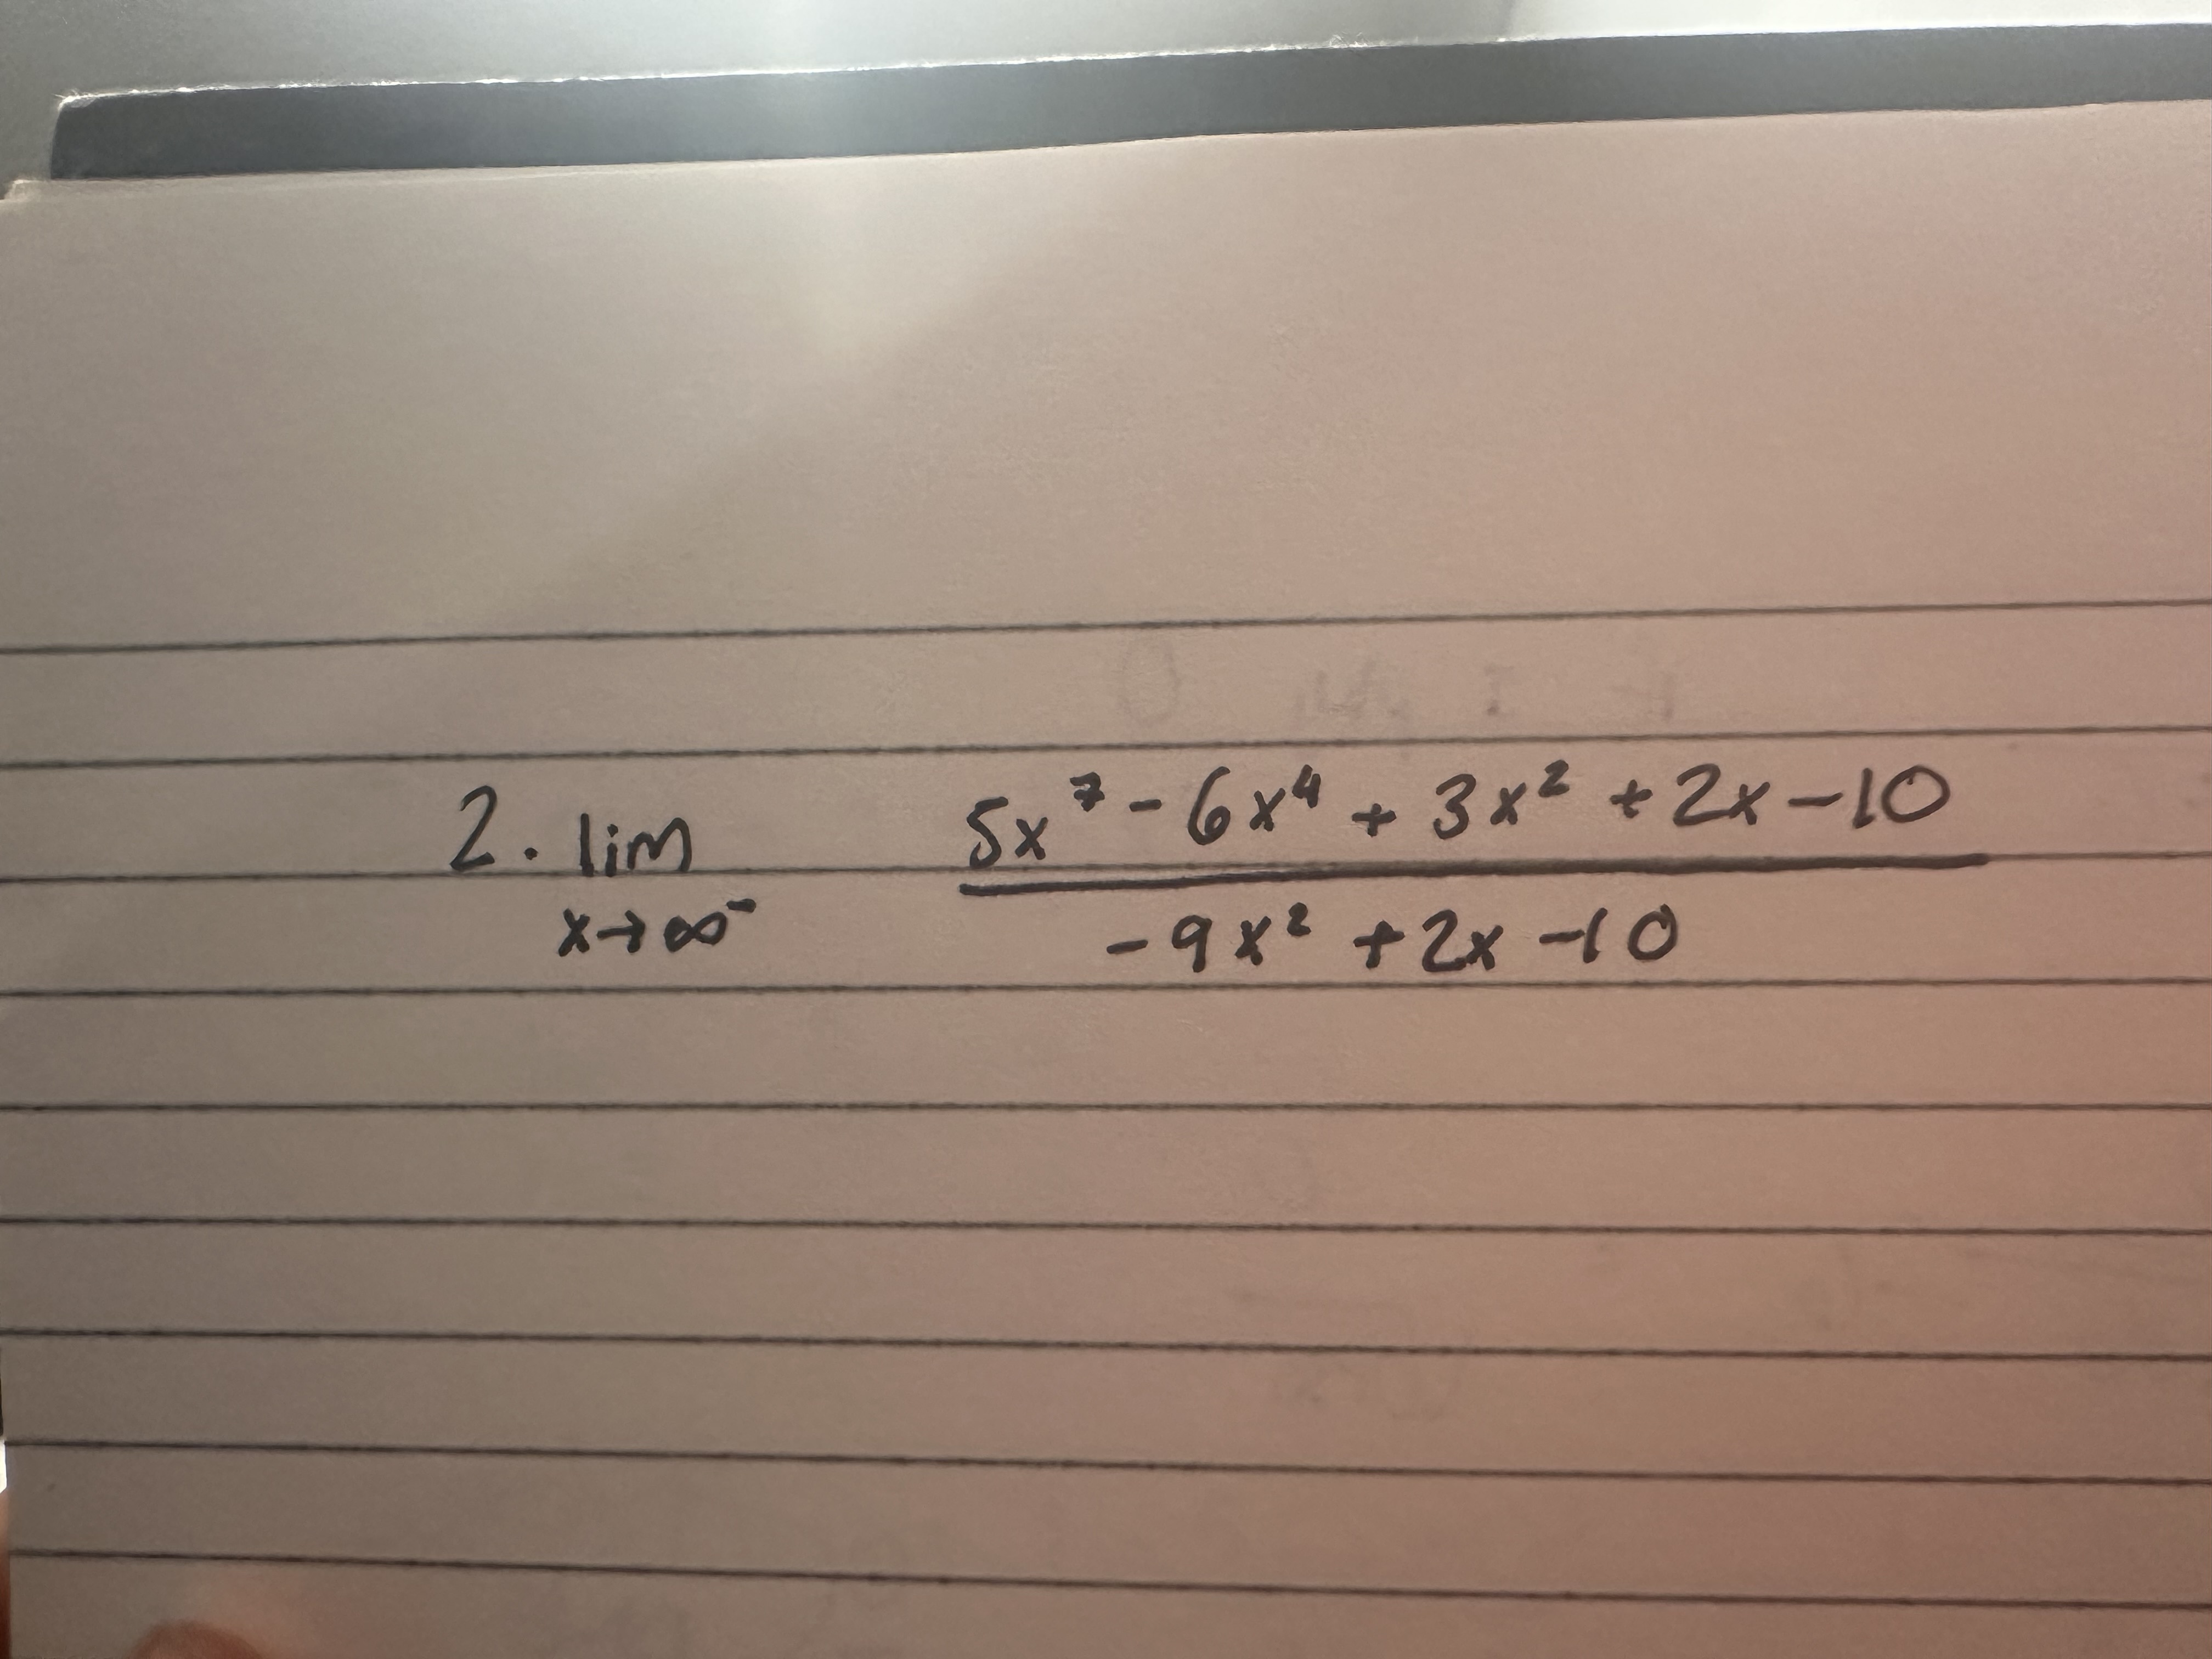 2. lim x→∞⁻ (5x⁷ - 6x⁴ + 3x² + 2x - 10) / (-9x² + 2x - 10)